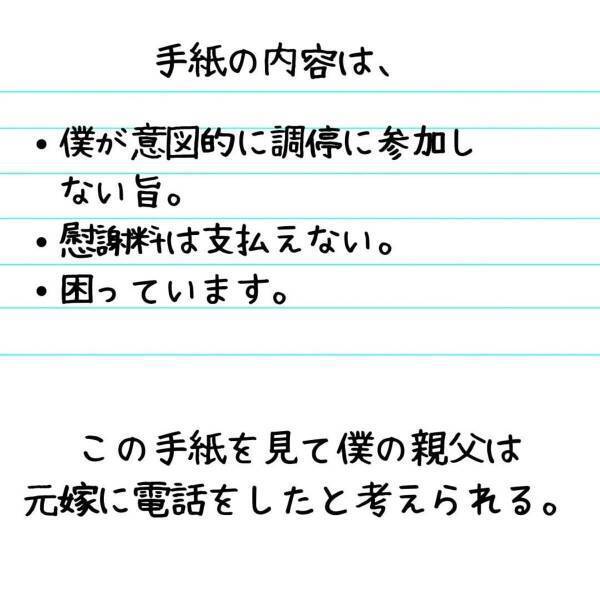 手紙の内容は、
• 僕が意図的に調停に参加し
ない旨。
• 慰謝料は支払えない。
• 困っています。
この手紙を見て僕の親父は
元嫁に電話をしたと考えられる。